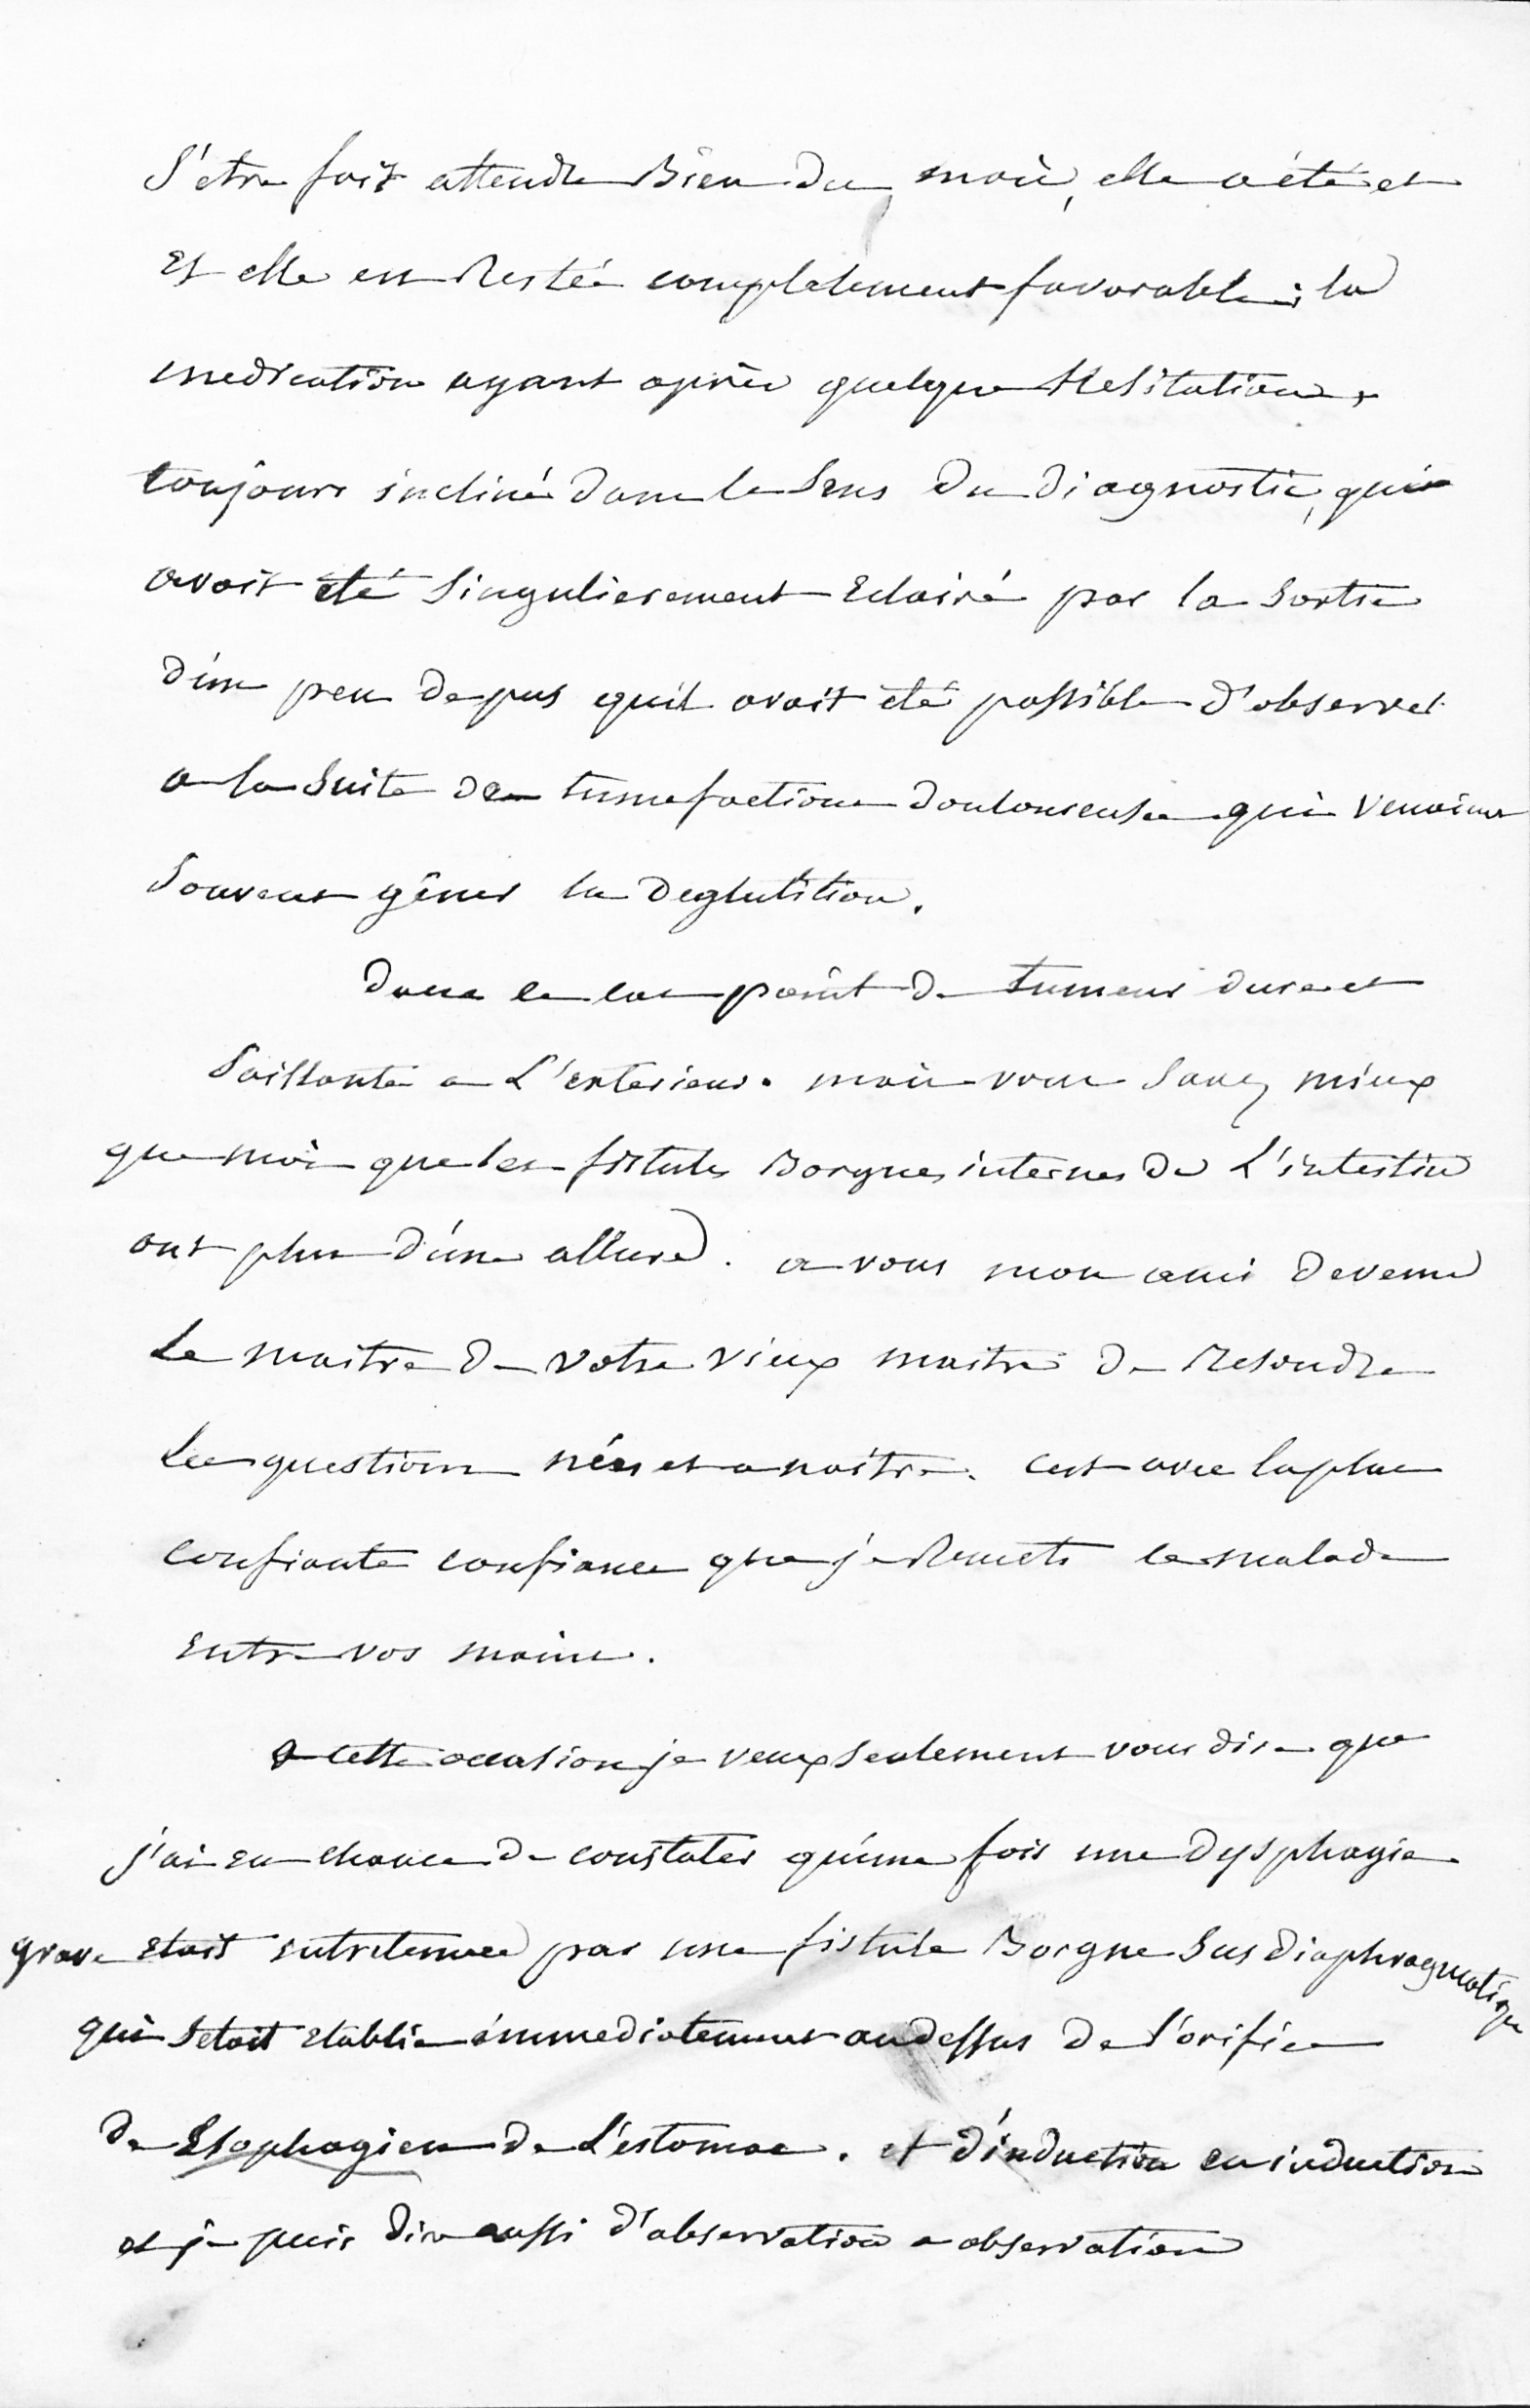 s'etre fait attendre Bien du mois, elle a été et
Et elle est Restée completement favorable ; la
medication ayant après quelque Hesitations,
toujours incliné dans le Sens du Diagnostic, qui
avait été Singulierement Eclairé par la Sortie
d'un peu de pus quil avait été possible d'observer
a la Suite de tumefactions douloureuses qui venaient
Souvent gêner la Deglutition.
dans ce cas point de tumeur dure et
Saillante a L'exterieur. mais vous Savez mieux
que moi que les fistules Borgnes internes de L'intestin
ont plus d'une allure. a vous mon ami devenu
Le maitre de votre vieux maitre de Resoudre
Les questions nées et a naitre. cest avec la plus
confiante confiance que je Remets ce malade
Entre vos mains.
a cette occasion je veux seulement vous dire que
j'ai eu chance de constater qu'une fois une Dysphagie
grave etait entretenue par une fistule Borgne Sus diaphragmatique
qui S'etait Etablie immediatement au dessus de l'orifice
de Esophagien de L'estomac. et d'induction en induction
et je puis dire aussi d'observation a observation